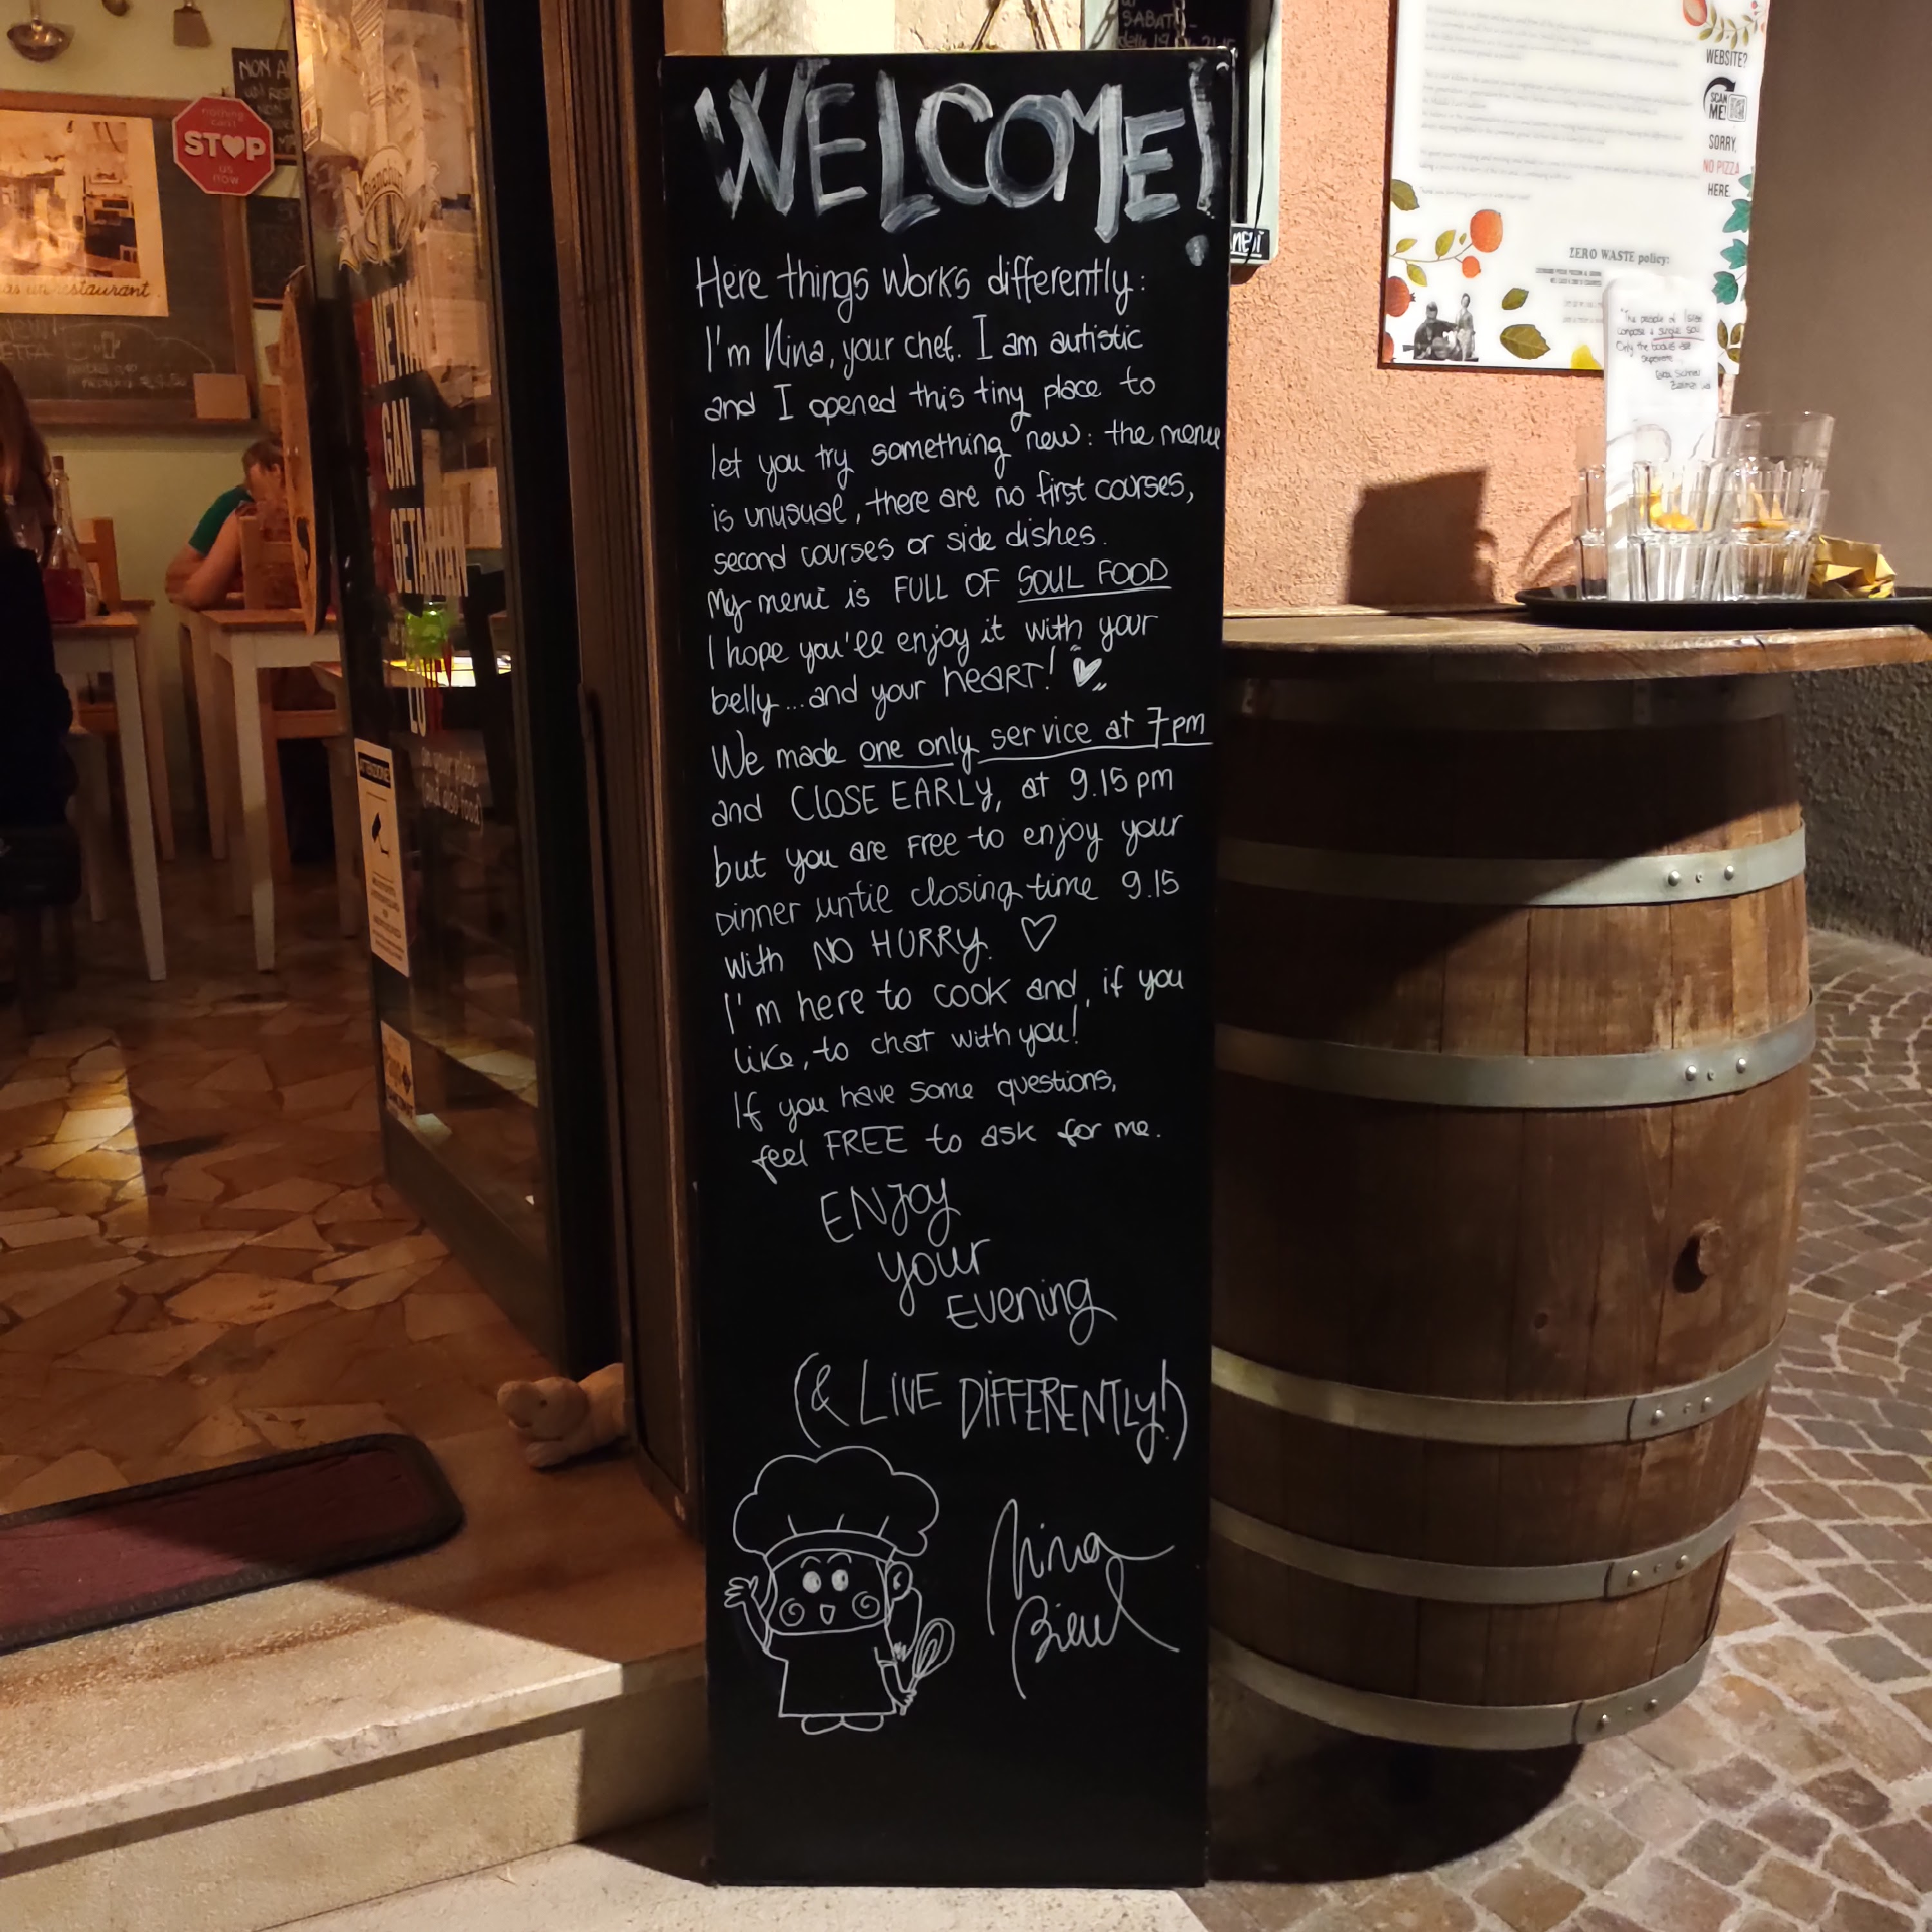 WELCOME!
Here things works differently:
I'm Nina, your chef. I am autistic
and I opened this tiny place to
let you try something new: the menu
is unusual, there are no first courses,
second courses or side dishes.
My menu is FULL OF SOUL FOOD
I hope you'll enjoy it with your
belly... and your heART!
We made one only service at 7pm
and CLOSE EARLY, at 9.15 pm
but you are Free to enjoy your
Dinner until closing time 9.15
with NO HURRY.
I'm here to cook and, if you
like, to chat with you!
If you have some questions,
feel FREE to ask for me.
ENJOY
your
Evening
(& LIVE DIFFERENTLY!)
Nina
STOP
us
now
NON A
as un restaurant.
CAN
GETARIAN
ATTENZIONE
SABAT
WEBSITE?
SCAN
ME!
SORRY,
NO PIZZA
HERE.
ZERO WASTE policy:
"The people of
compose a single soul
Only the bodies